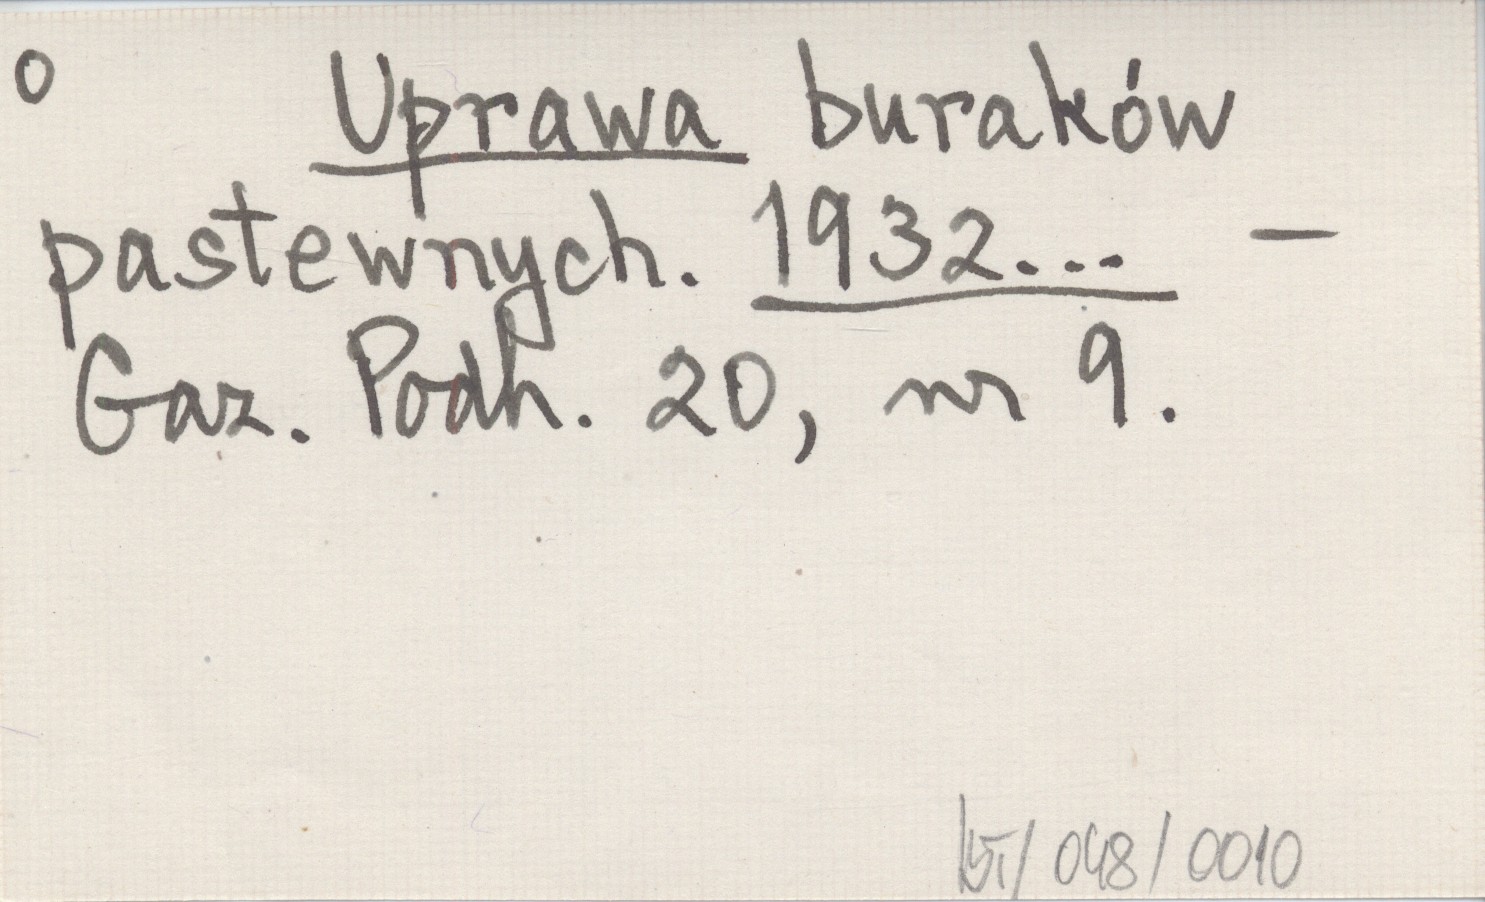 o Uprawa buraków
pastewnych. 1932... —
Gaz. Podh. 20, nr 9.
/ 048 / 0010